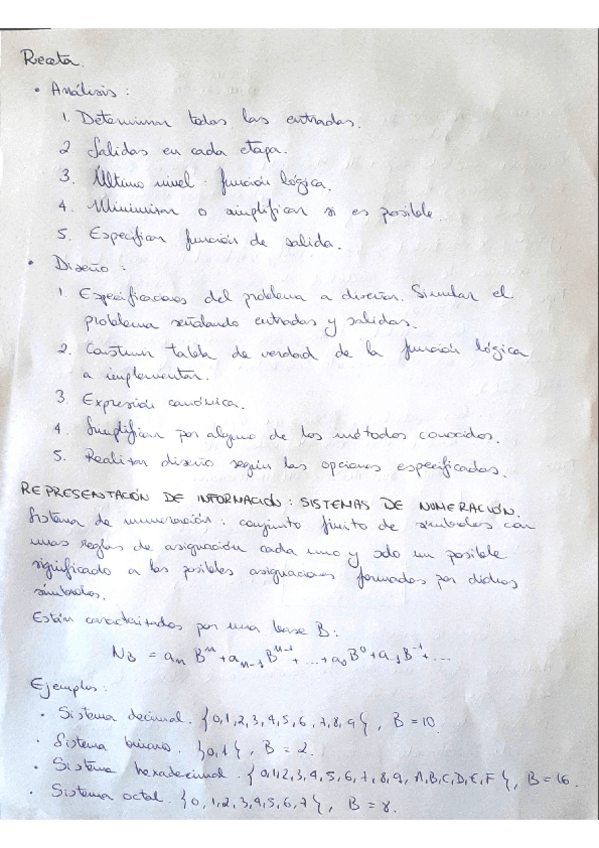 Receta.
• Análisis:
1. Determinar todas las entradas.
2 Salidas en cada etapa.
3. Último nivel: función lógica.
4. Minimizar o simplificar si es posible.
5. Especificar función de salida.
• Diseño:
1. Especificaciones del problema a diseñar. Simular el
problema señalando entradas y salidas.
2. Construir tabla de verdad de la función lógica
a implementar.
3. Expresión canónica.
4. Simplificar por alguno de los métodos conocidos.
5. Realizar diseño según las opciones especificadas.
REPRESENTACIÓN DE INFORMACIÓN: SISTEMAS DE NUMERACIÓN.
Sistema de numeración: conjunto finito de símbolos con
unas reglas de asignación cada uno y solo un posible
significado a las posibles asignaciones formadas por dichos
símbolos.
Están caracterizados por una base B:
N_B = a_n B^n + a_{n-1} B^{n-1} + ... + a_0 B^0 + a_{-1} B^{-1} + ...
Ejemplos:
• Sistema decimal. {0,1,2,3,4,5,6,7,8,9}, B = 10
• Sistema binario. {0,1}, B = 2.
• Sistema hexadecimal. {0,1,2,3,4,5,6,7,8,9,A,B,C,D,E,F}, B = 16.
• Sistema octal. {0,1,2,3,4,5,6,7}, B = 8.